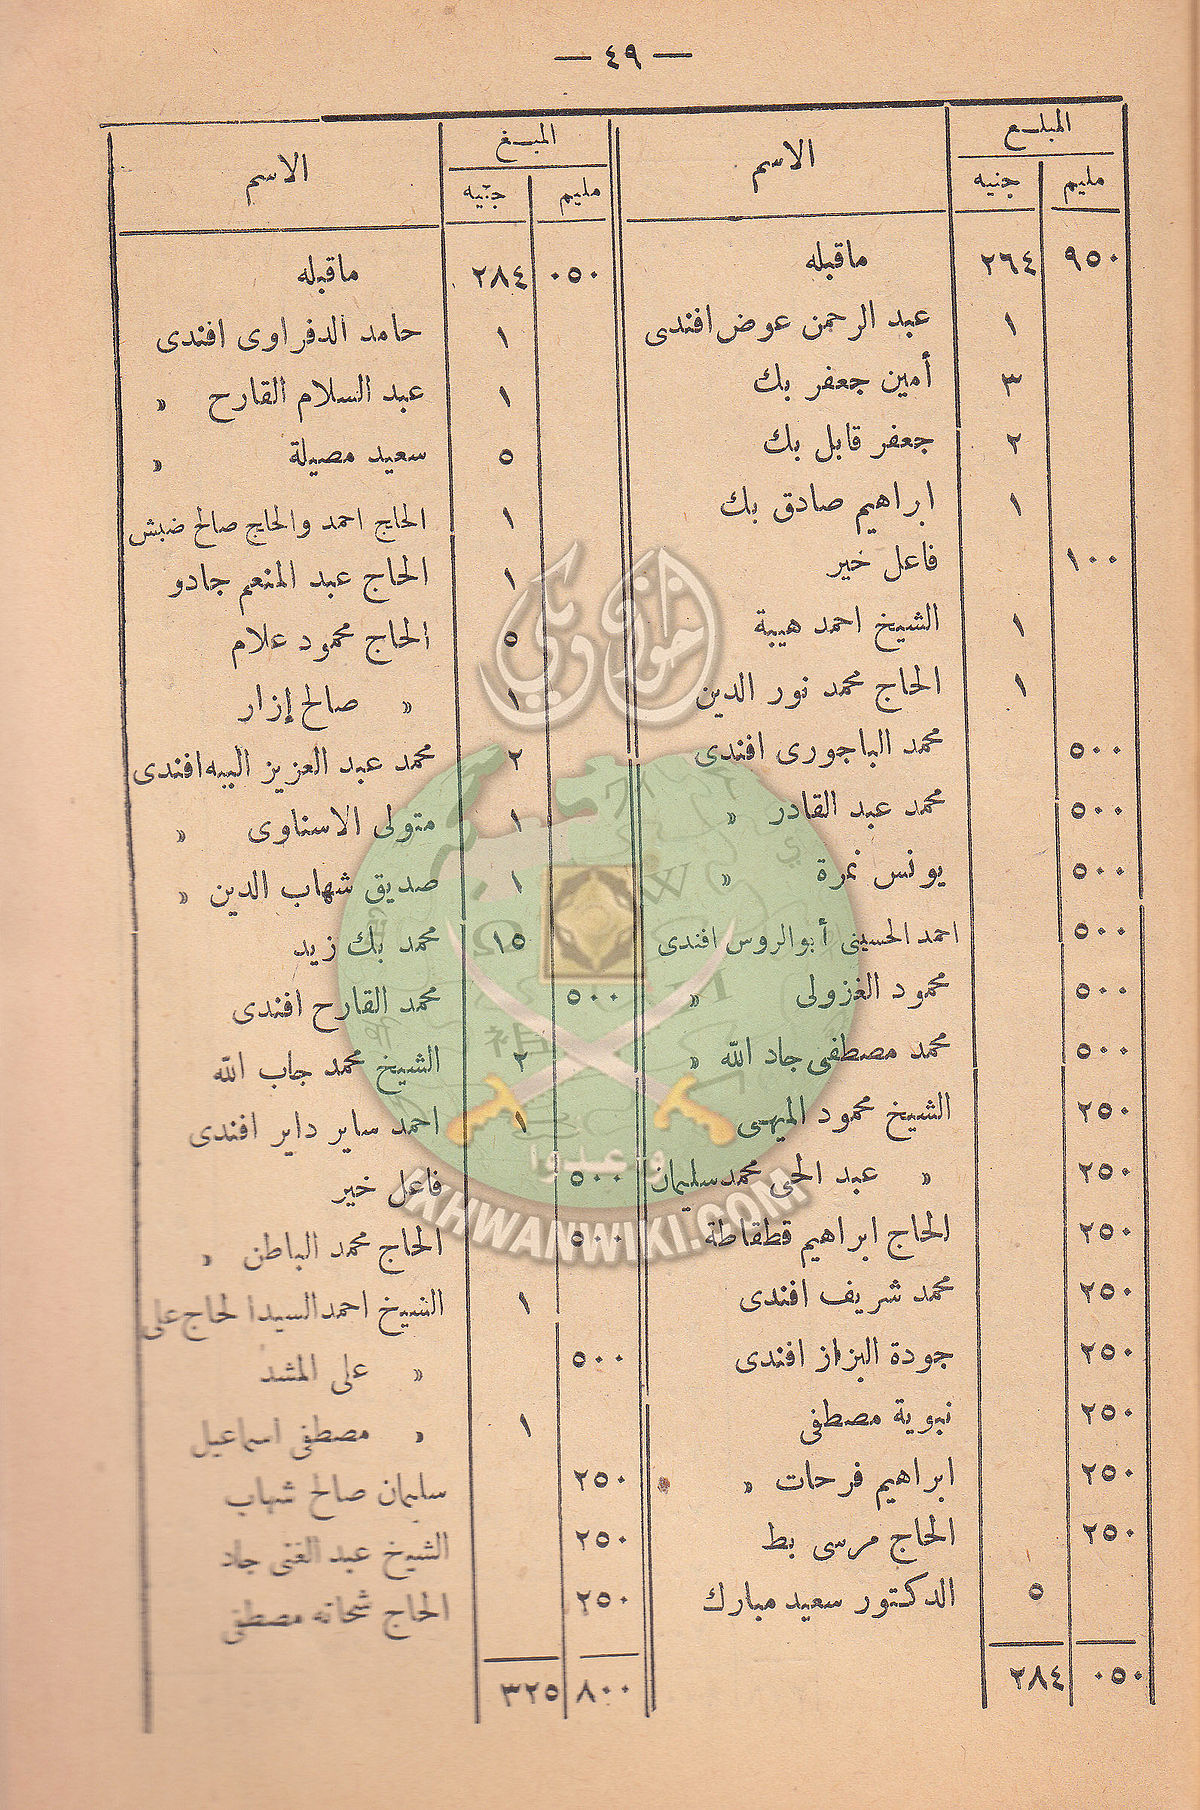 — ٤٩ —
المبلـغ
مليم جنيه الاسم
٩٥٠ ٢٦٤ ماقبله
١ عبد الرحمن عوض افندى
٣ أمين جعفر بك
٢ جعفر قابل بك
١ ابراهيم صادق بك
١٠٠ فاعل خير
١ الشيخ احمد هيبة
١ الحاج محمد نور الدين
٥٠٠ محمد الباجورى افندى
٥٠٠ محمد عبد القادر »
٥٠٠ يونس نمرة »
٥٠٠ احمد الحسينى أبو الروس افندى
٥٠٠ محمود الغزولى »
٥٠٠ محمد مصطفى جاد الله »
٢٥٠ الشيخ محمود الميهى
٢٥٠ » عبد الحى محمد سليمان
٢٥٠ الحاج ابراهيم قطقاطة
٢٥٠ محمد شريف افندى
٢٥٠ جودة البزاز افندى
٢٥٠ نبوية مصطفى
٢٥٠ ابراهيم فرحات »
٢٥٠ الحاج مرسى بط
٥ الدكتور سعيد مبارك
٠٥٠ ٢٨٤
المبـلغ
مليم جنيه الاسم
٠٥٠ ٢٨٤ ماقبله
١ حامد الدفراوى افندى
١ عبد السلام القارح »
٥ سعيد مصيلة »
١ الحاج احمد والحاج صالح ضبش
١ الحاج عبد المنعم جادو
٥ الحاج محمود علام
١ » صالح إزار
٢ محمد عبد العزيز البيه افندى
١ متولى الاسناوى »
١ صديق شهاب الدين »
١٥ محمد بك زيد
٥٠٠ محمد القارح افندى
٢ الشيخ محمد جاب الله
١ احمد ساير داير افندى
٥٠٠ فاعل خير
٥٠٠ الحاج محمد الباطن »
١ الشيخ احمد السيد الحاج على
٥٠٠ » على المشد
١ » مصطفى اسماعيل
٢٥٠ سليمان صالح شهاب
٢٥٠ الشيخ عبد الغنى جاد
٢٥٠ الحاج شحاته مصطفى
٨٠٠ ٣٢٥
إخوان ويكي
وأعدوا
IKHWANWIKI.COM